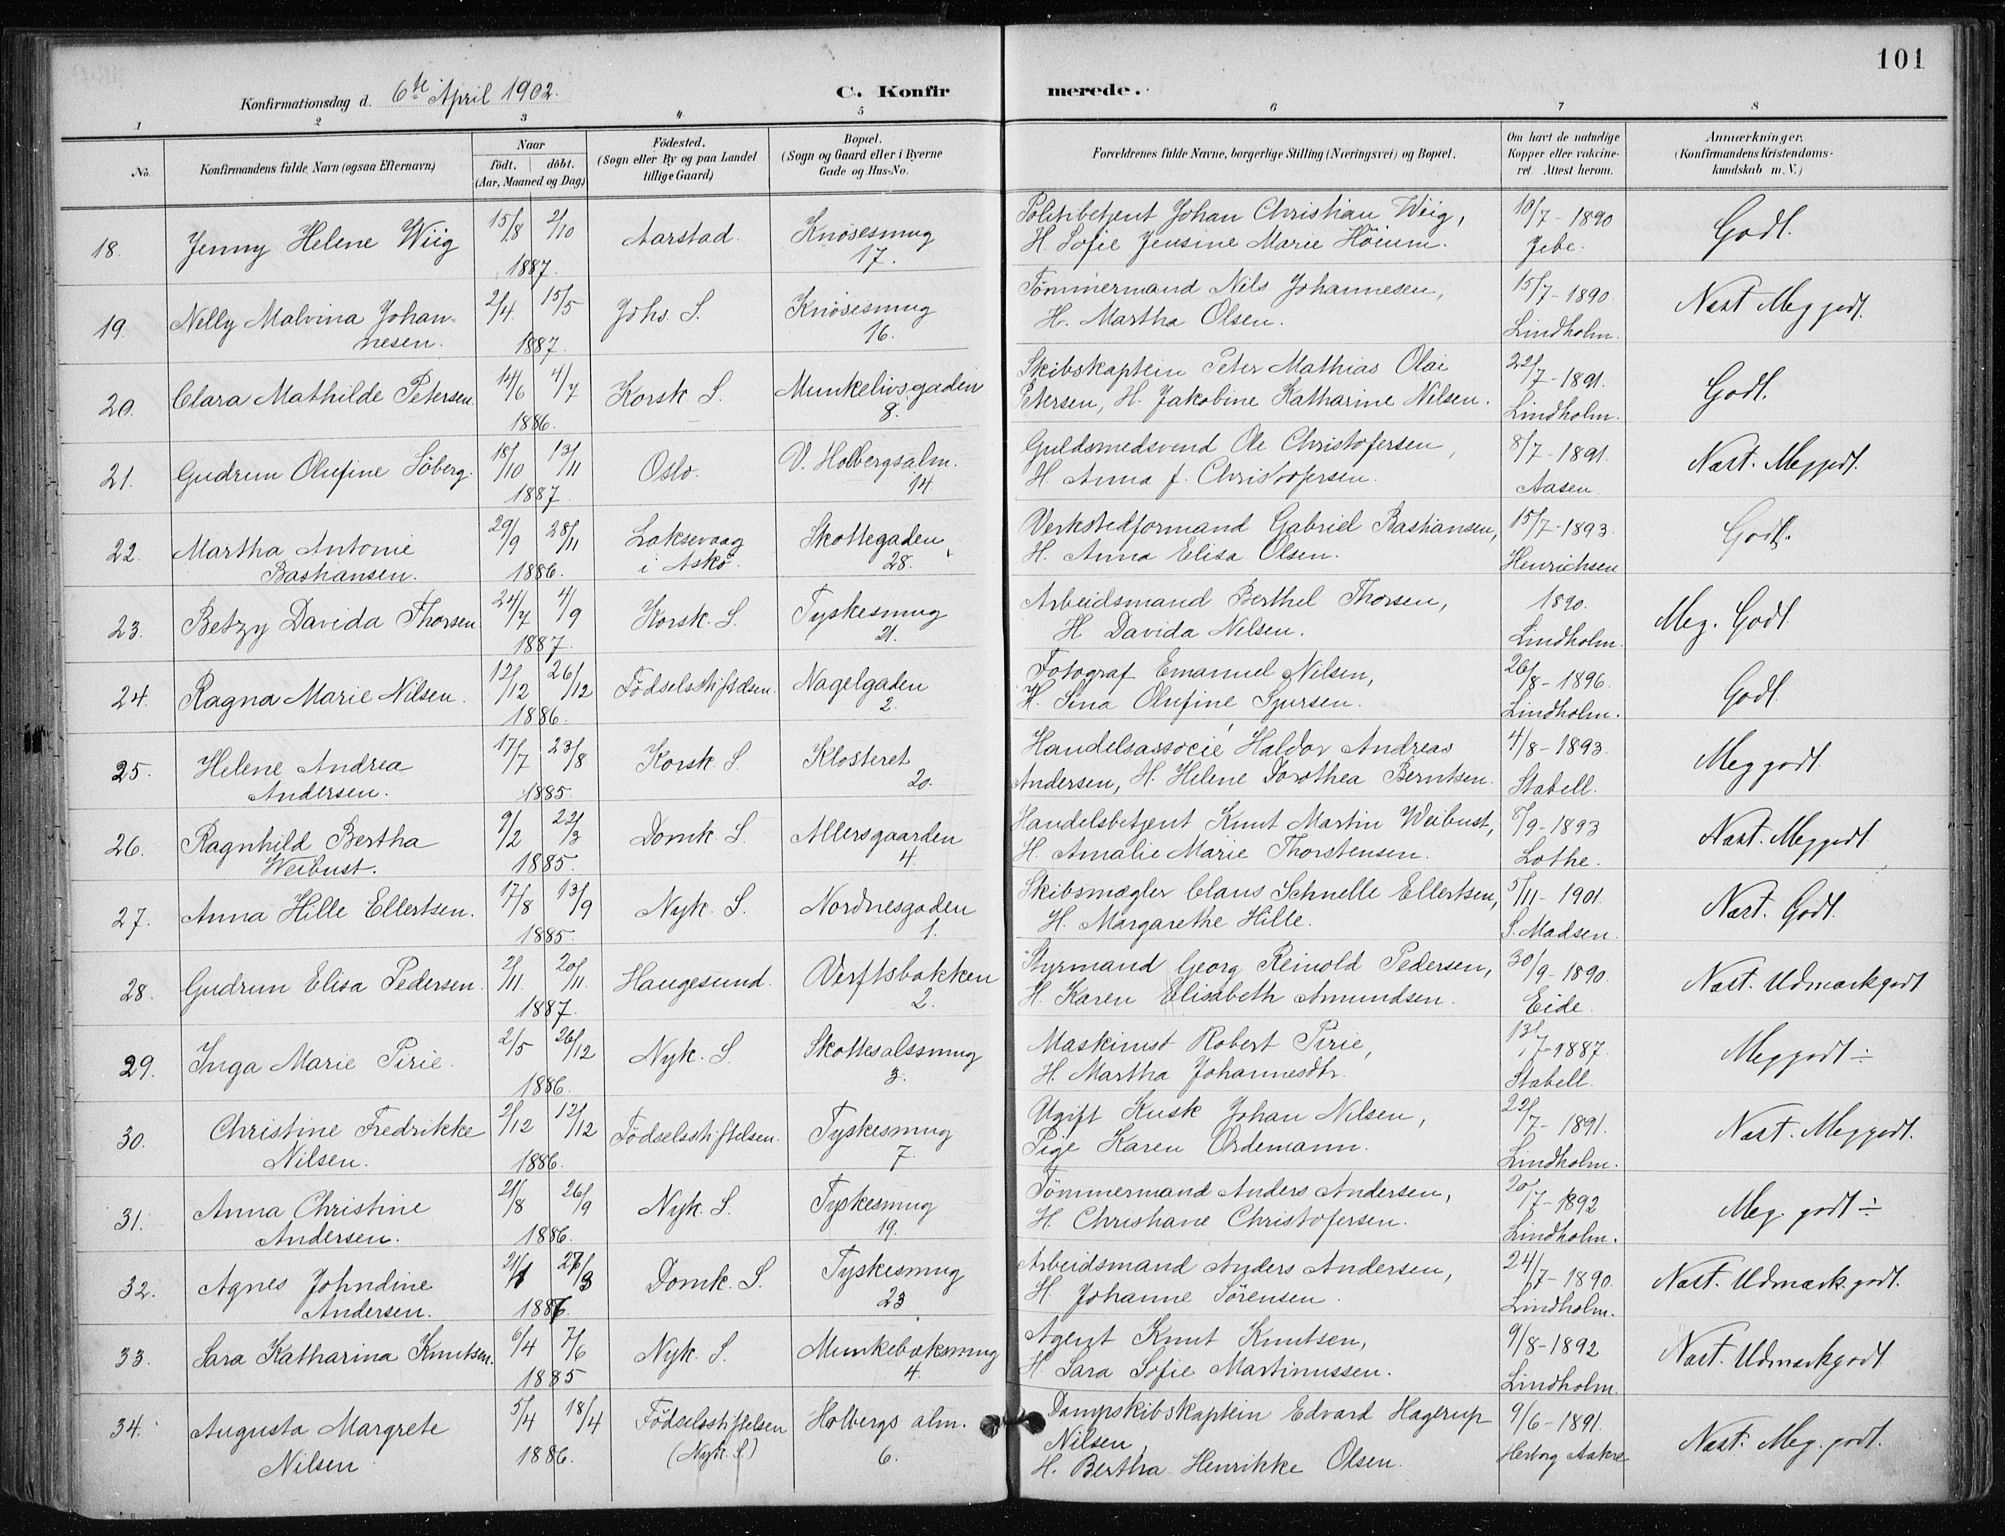 101
Konfirmationsdag d. 6te April 1902.
C. Konfirmerede.
1 2 3 4 5 6 7 8
No.
Konfirmandens fulde Navn (ogsaa Efternavn)
Naar
født. døbt.
(Aar, Maaned og Dag)
Födested.
(Sogn eller By og paa Landet
tillige Gaard)
Bopæl.
(Sogn og Gaard eller i Byerne
Gade og Hus-No.
Forældrenes fulde Navne, borgerlige Stilling (Næringsvei) og Bopæl.
Om havt de naturlige
Kopper eller vakcine-
ret Attest herom.
Anmærkninger.
(Konfirmandens Kristendoms-
kundskab m. V.)
18. Jenny Helene Wiig 15/8 2/10 1887. Aarstad. Knøsesmug 17.
Politibetjent Johan Christian Wiig,
H. Sofie Jensine Marie Höium.
10/7 - 1890 Jebe.
Godt.
19. Nelly Malvina Johan-
nesen. 2/4 15/5 1887. Johs. S. Knøsesmug 16.
Tömmermand Nils Johannesen,
H. Martha Olsen.
15/7 - 1890. Lindholm.
Næst Meg godt.
20. Clara Mathilde Petersen. 14/6 4/7 1886. Korsk. S. Munkelivsgaden 8.
Skibskaptein Peter Mathias Olai
Petersen, H. Jakobine Katharine Nilsen.
22/7 - 1891. Lindholm.
Godt.
21. Gudrun Olufine Söberg. 18/10 13/11 1887. Oslo. V. Holbergsalm. 14.
Guldsmedsvend Ole Christofersen,
H Anna f. Christofersen.
8/7 - 1891. Aasen
Næst. Meg godt.
22. Martha Antonie
Bastiansen. 29/9 28/11 1886. Laksevaag
i Askö. Skottegaden 28.
Verkstedformand Gabriel Bastiansen,
H. Anna Elisa Olsen.
15/7 - 1893. Henrichsen
Godt.
23. Betzy Davida Thorsen 24/7 4/9 1887. Korsk. S. Tyskesmug 21.
Arbeidsmand Berthel Thorsen,
H Davida Nilsen.
1890. Lindholm.
Meg. Godt.
24. Ragna Marie Nilsen. 12/12 26/12 1886. Födselsstiftelsen. Nagelgaden 2.
Fotograf Emanuel Nilsen,
H. Sina Olufine Sjursen.
26/8 - 1896. Lindholm.
Godt
25. Helene Andrea
Andersen. 17/7 23/8 1885. Korsk. S. Klosteret 20.
Handelsassocié Haldor Andreas
Andersen, H. Helene Dorothea Berntsen.
4/8 - 1893. Stabell.
Meg godt.
26. Ragnhild Bertha
Weibust. 9/2 22/3 1885. Domk. S. Allersgaarden 4.
Handelsbetjent Knut Martin Weibust,
H. Amalie Marie Thorstensen.
8/9 - 1893 Lothe.
Næst. Meg godt.
27. Anna Hille Ellertsen. 17/8 13/9 1885. Nyk. S. Nordnesgaden 1.
Skibsmægler Claus Schnelle Ellertsen,
H. Margarethe Hille.
5/11 - 1901. S. Madsen.
Næst. Godt.
28. Gudrun Elisa Pedersen. 2/11. 20/11. 1887. Haugesund. Verftsbakken 2.
Styrmand Georg Reinold Pedersen,
H. Karen Elisabeth Amundsen.
30/9 - 1890. Eide.
Næst. Udmærkgodt
29. Inga Marie Pirie. 2/5 26/12 1886. Nyk. S. Skottesalssmug 3.
Maskinist Robert Pirie,
H. Martha Johannesdtr.
13/7 - 1887. Stabell.
Meg godt ÷
30. Christine Fredrikke
Nilsen. 2/12 12/12 1886. Födselsstiftelsen. Tyskesmug 7.
Ugift Kusk Johan Nilsen,
Pige Karen Ordemann.
22/7 - 1891. Lindholm.
Næst. Meg godt.
31. Anna Christine
Andersen. 21/8 26/9 1886. Nyk. S. Tyskesmug 19.
Tömmermand Anders Andersen,
H. Christiane Christofersen.
20/7 - 1892 Lindholm.
Meg. godt ÷
32. Agnes Johndine
Andersen. Domk. S. Tyskesmug 23
Arbeidsmand Anders Andersen,
H. Johanne Sörensen.
24/7 - 1890. Lindholm.
Næst. Udmærk. godt.
33. Sara Katharina Knutsen. 6/4 7/6 1885 Nyk. S. Munkebæksmug 4.
Agent Knut Knutsen,
H. Sara Sofie Martinussen.
9/8 - 1892 Lindholm
Næst. Udmærkgodt
34. Augusta Margrete
Nilsen 5/4 18/4 1886. Födselsstiftelsen
(Nyk. S.) Holbergs alm. 6.
Dampskibskaptein Edvard Hagerup
Nilsen,
H. Bertha Henrikke Olsen.
9/6 - 1891. Herborg Aakre
Næst. Meg. godt.